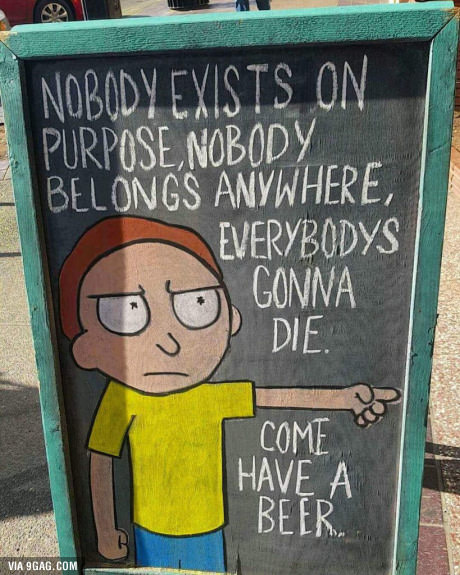 NOBODY EXISTS ON
PURPOSE, NOBODY
BELONGS ANYWHERE,
EVERYBODYS
GONNA
DIE.
COME
HAVE A
BEER..
VIA 9GAG.COM